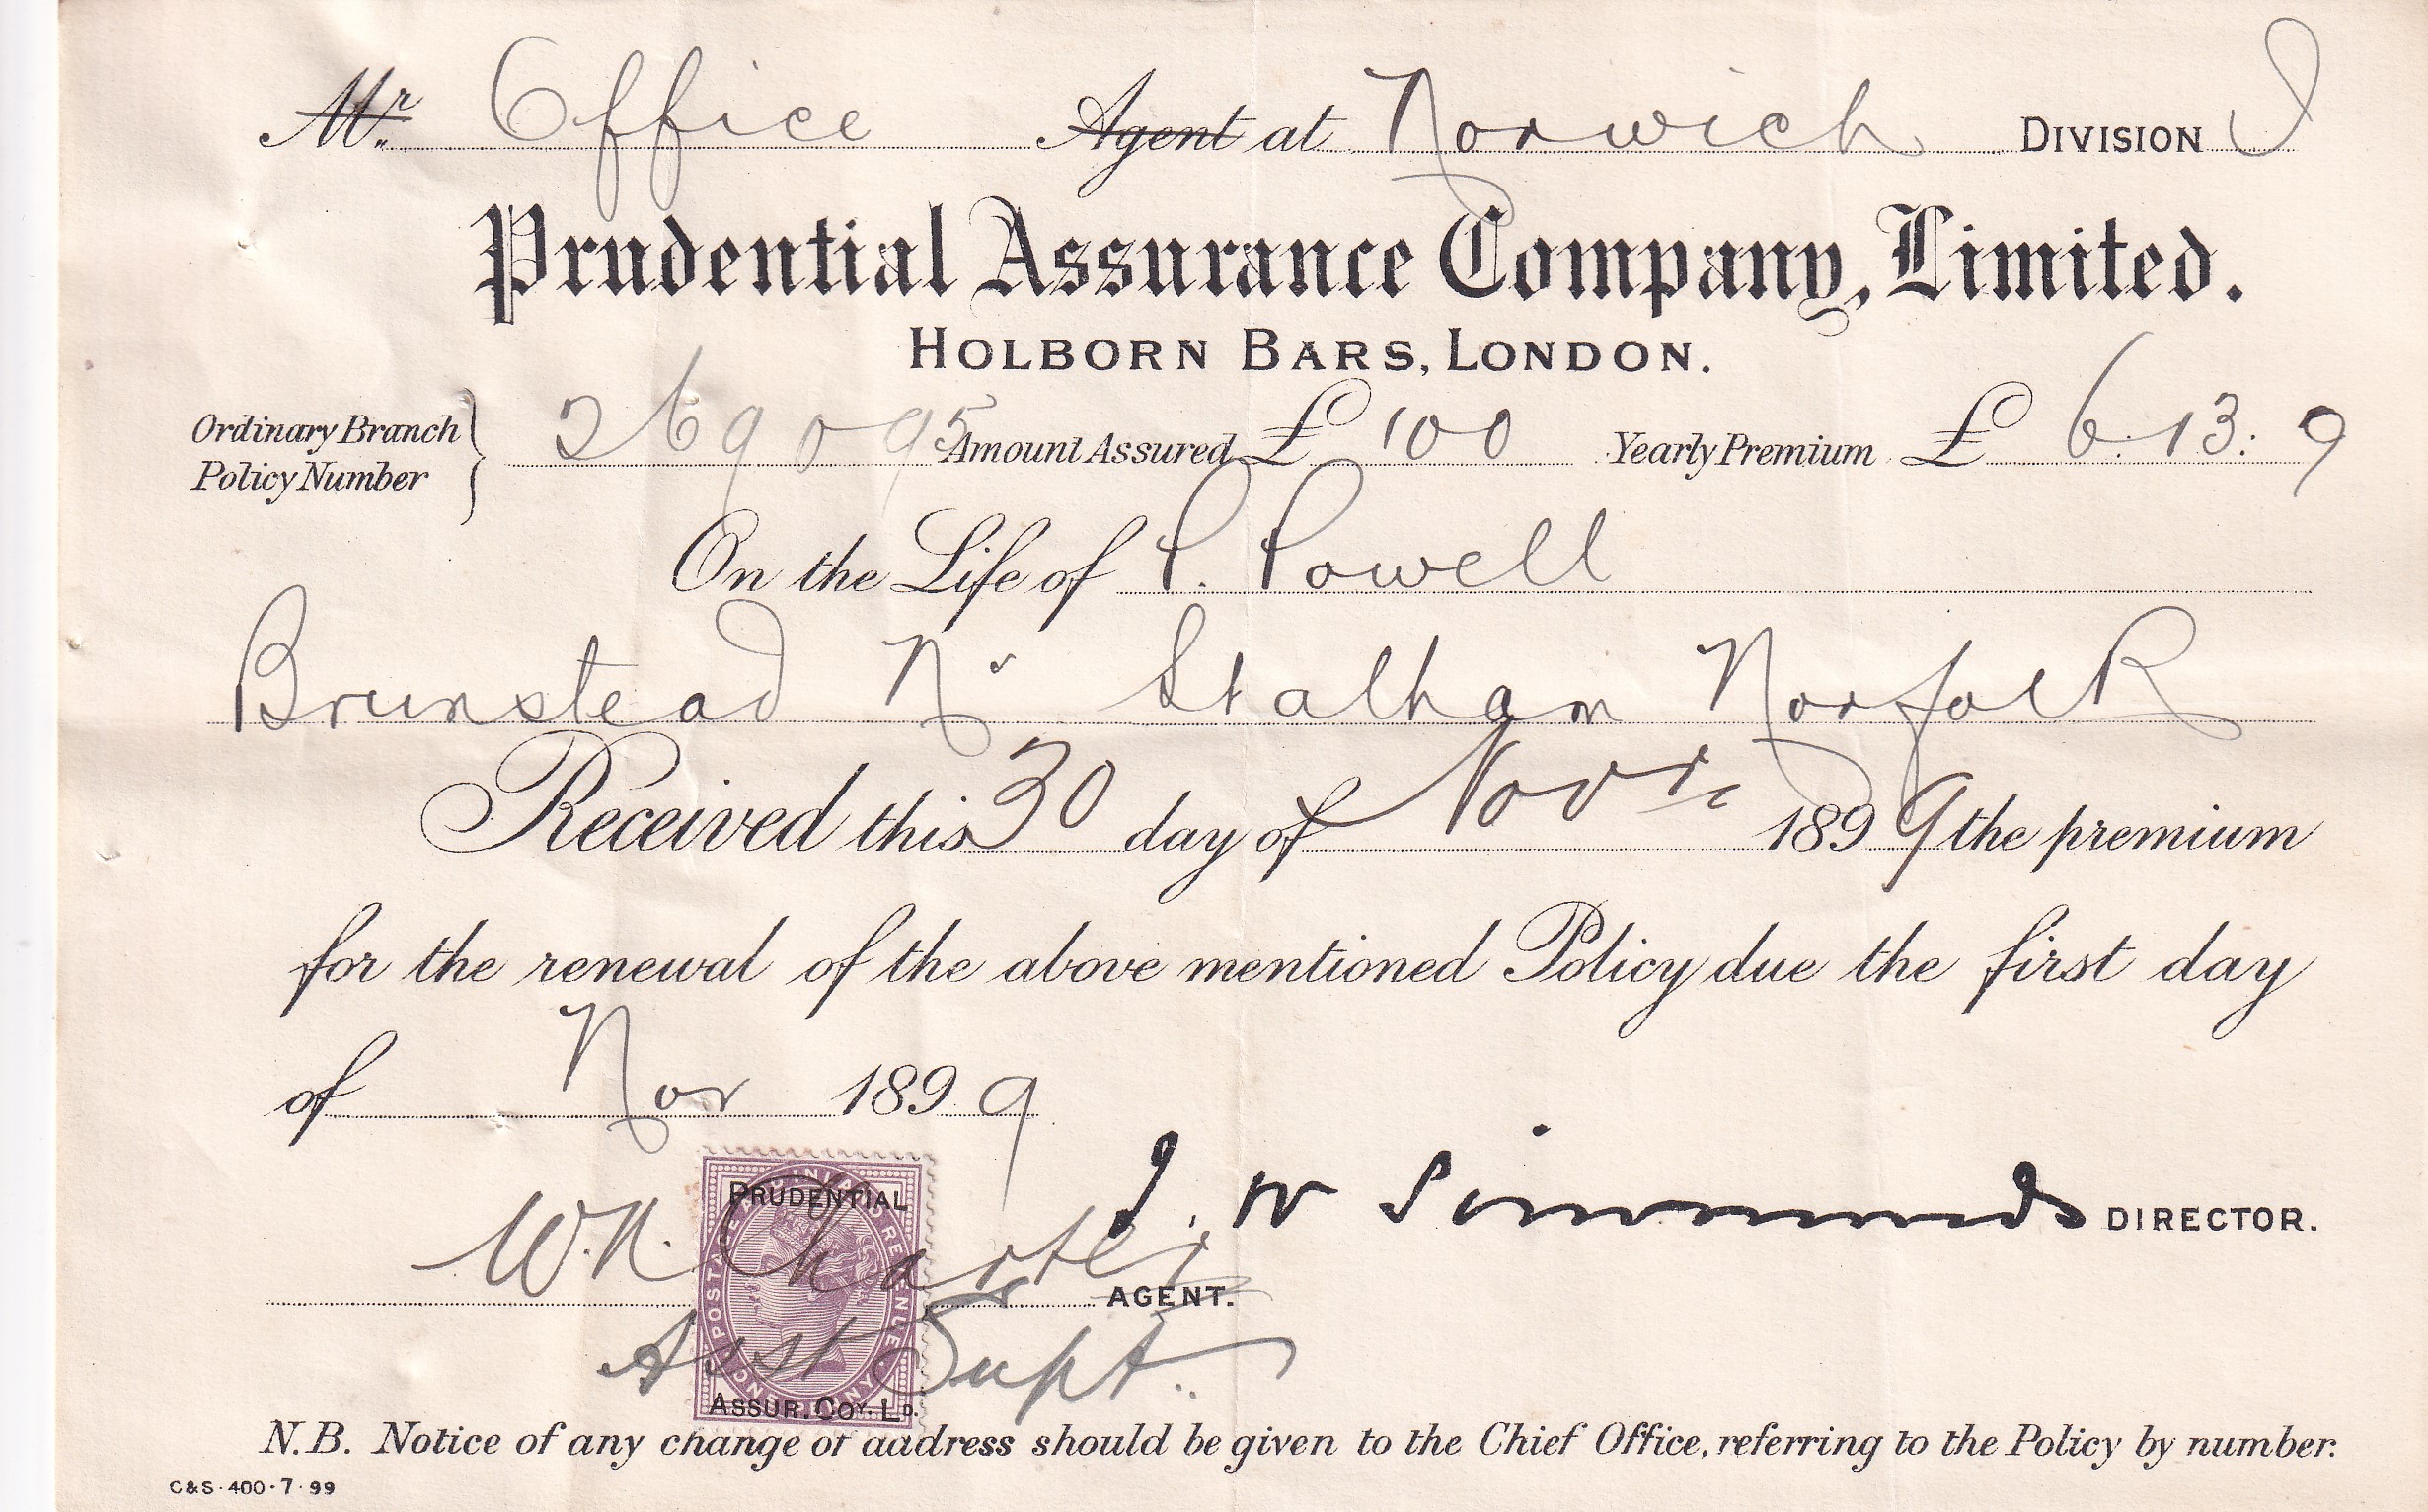 Mr. Office Agent at Norwich DIVISION J
Prudential Assurance Company, Limited.
HOLBORN BARS, LONDON.
Ordinary Branch Policy Number } 269095 Amount Assured £ 100 Yearly Premium £ 6:13:9
On the Life of P. Powell
Brunstead Nr Stalham Norfolk
Received this 30 day of Novr 1899 the premium
for the renewal of the above mentioned Policy due the first day
of Nov 1899
PRUDENTIAL
POSTAGE AND INLAND REVENUE
ONE PENNY
ASSUR. COY. LD.
J. W Simmonds DIRECTOR.
W.N. Charter AGENT.
Asst Supt.
N.B. Notice of any change of address should be given to the Chief Office, referring to the Policy by number.
C&S·400·7·99